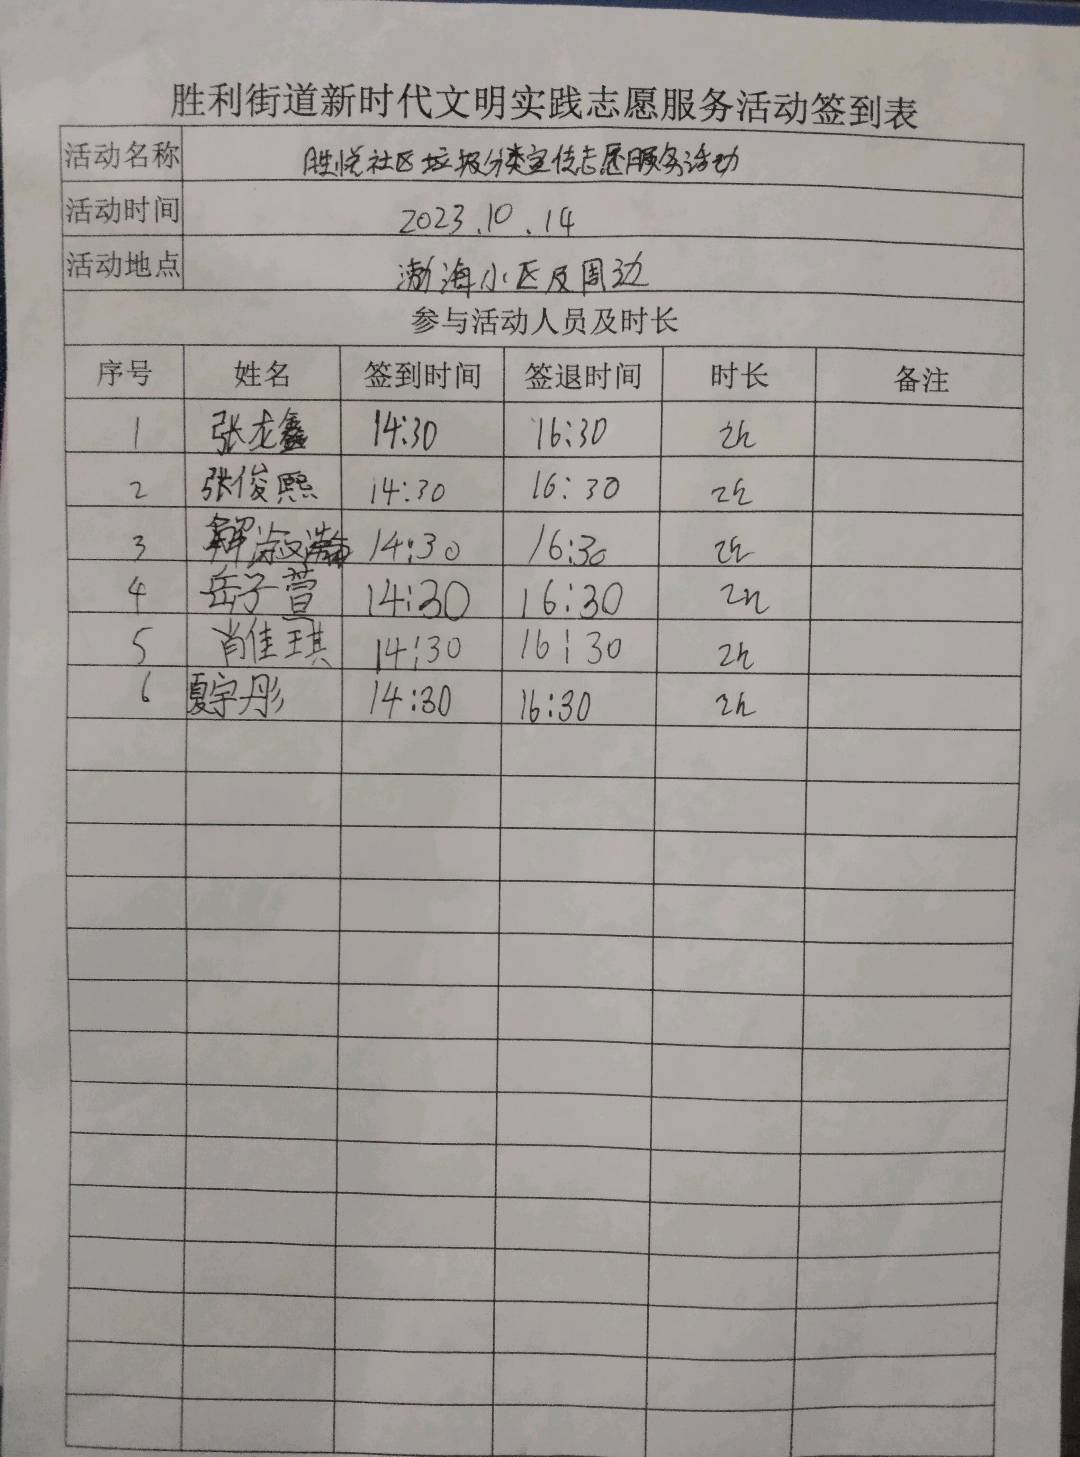 胜利街道新时代文明实践志愿服务活动签到表
活动名称 胜悦社区垃圾分类宣传志愿服务活动
活动时间 2023.10.14
活动地点 渤海小区及周边
参与活动人员及时长
序号 姓名 签到时间 签退时间 时长 备注
1 张龙鑫 14:30 16:30 2h
2 张俊熙 14:30 16:30 2h
3 解淑瀚 14:30 16:30 2h
4 岳子萱 14:30 16:30 2h
5 肖佳琪 14:30 16:30 2h
6 夏宇彤 14:30 16:30 2h